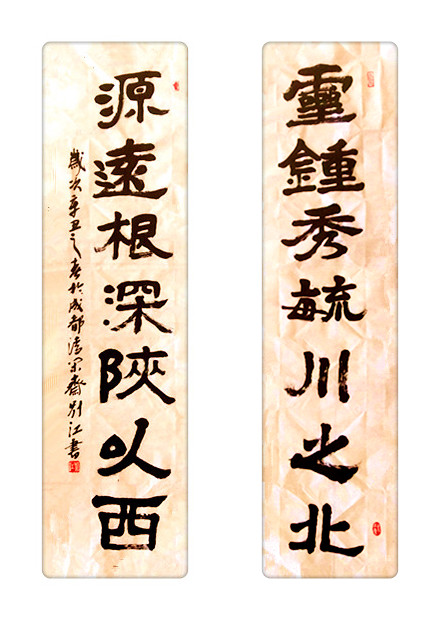 靈鍾秀毓川之北
源遠根深陝以西
歲次辛丑之春於成都清齋別江書